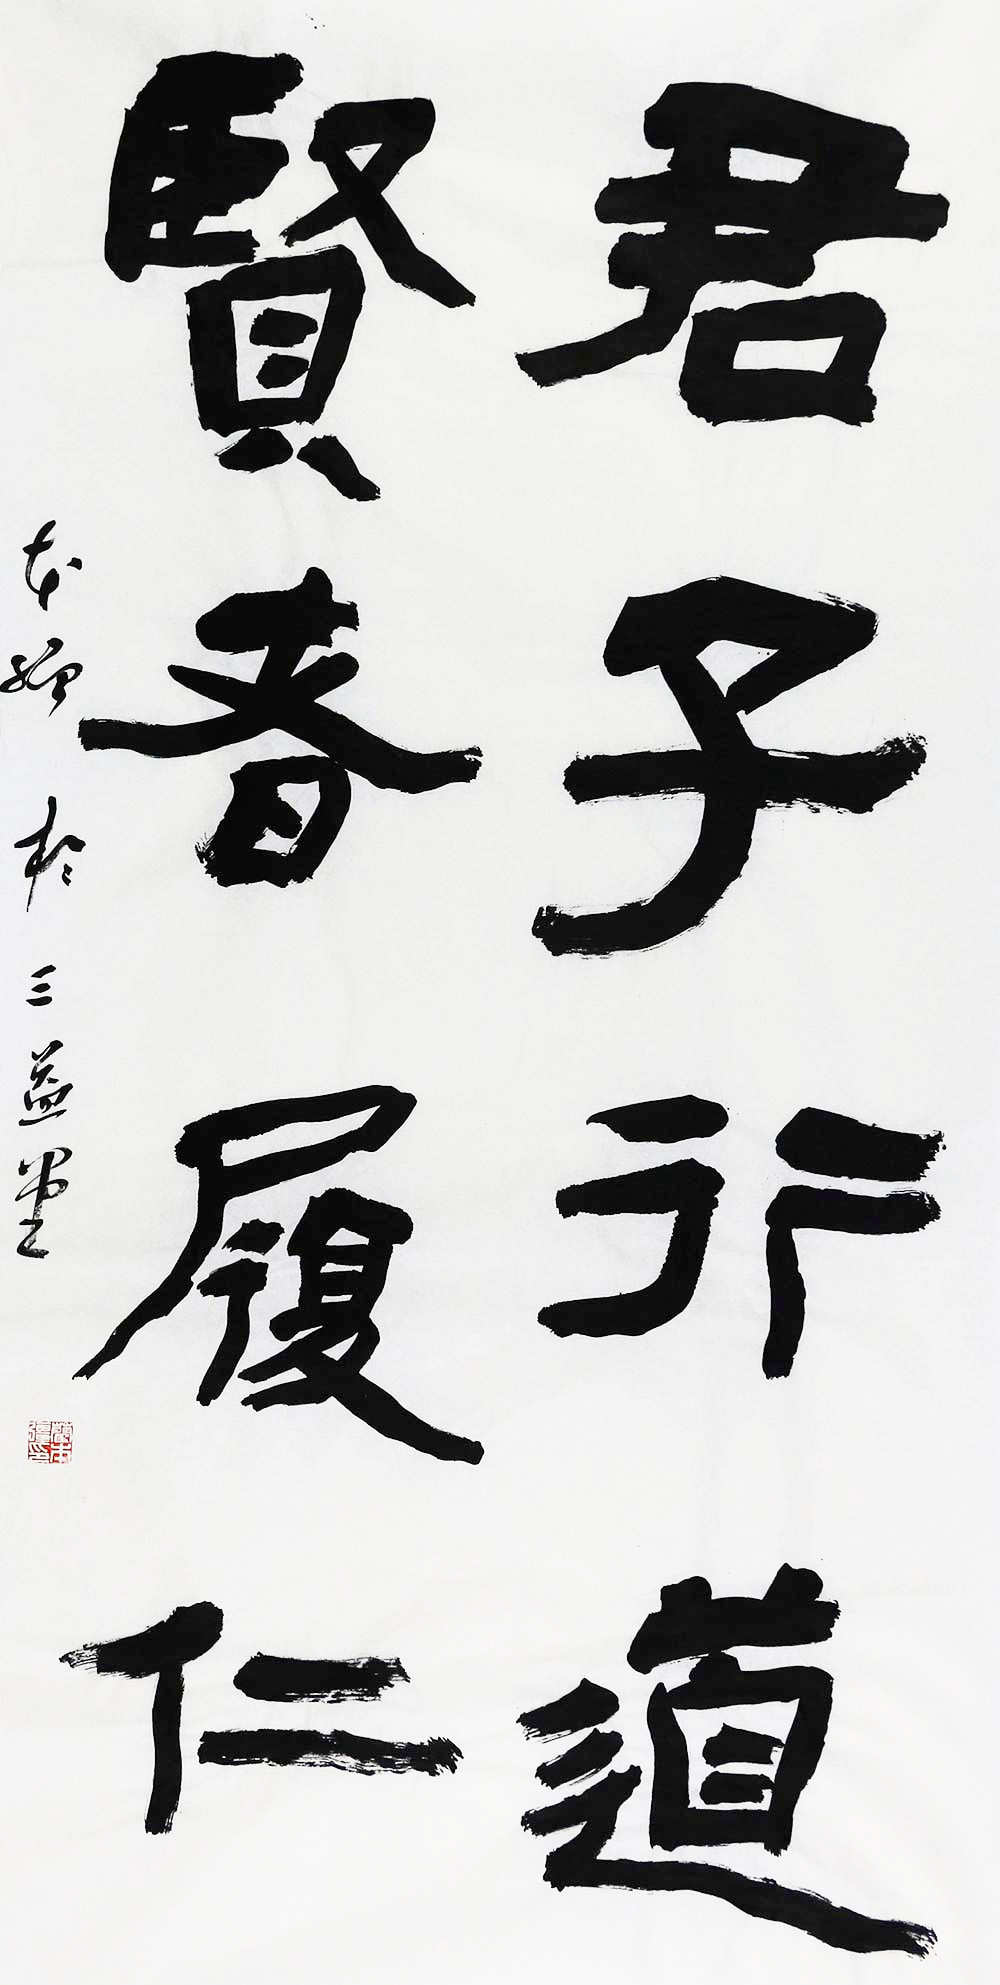 君子行道
賢者履仁
本 於三益堂